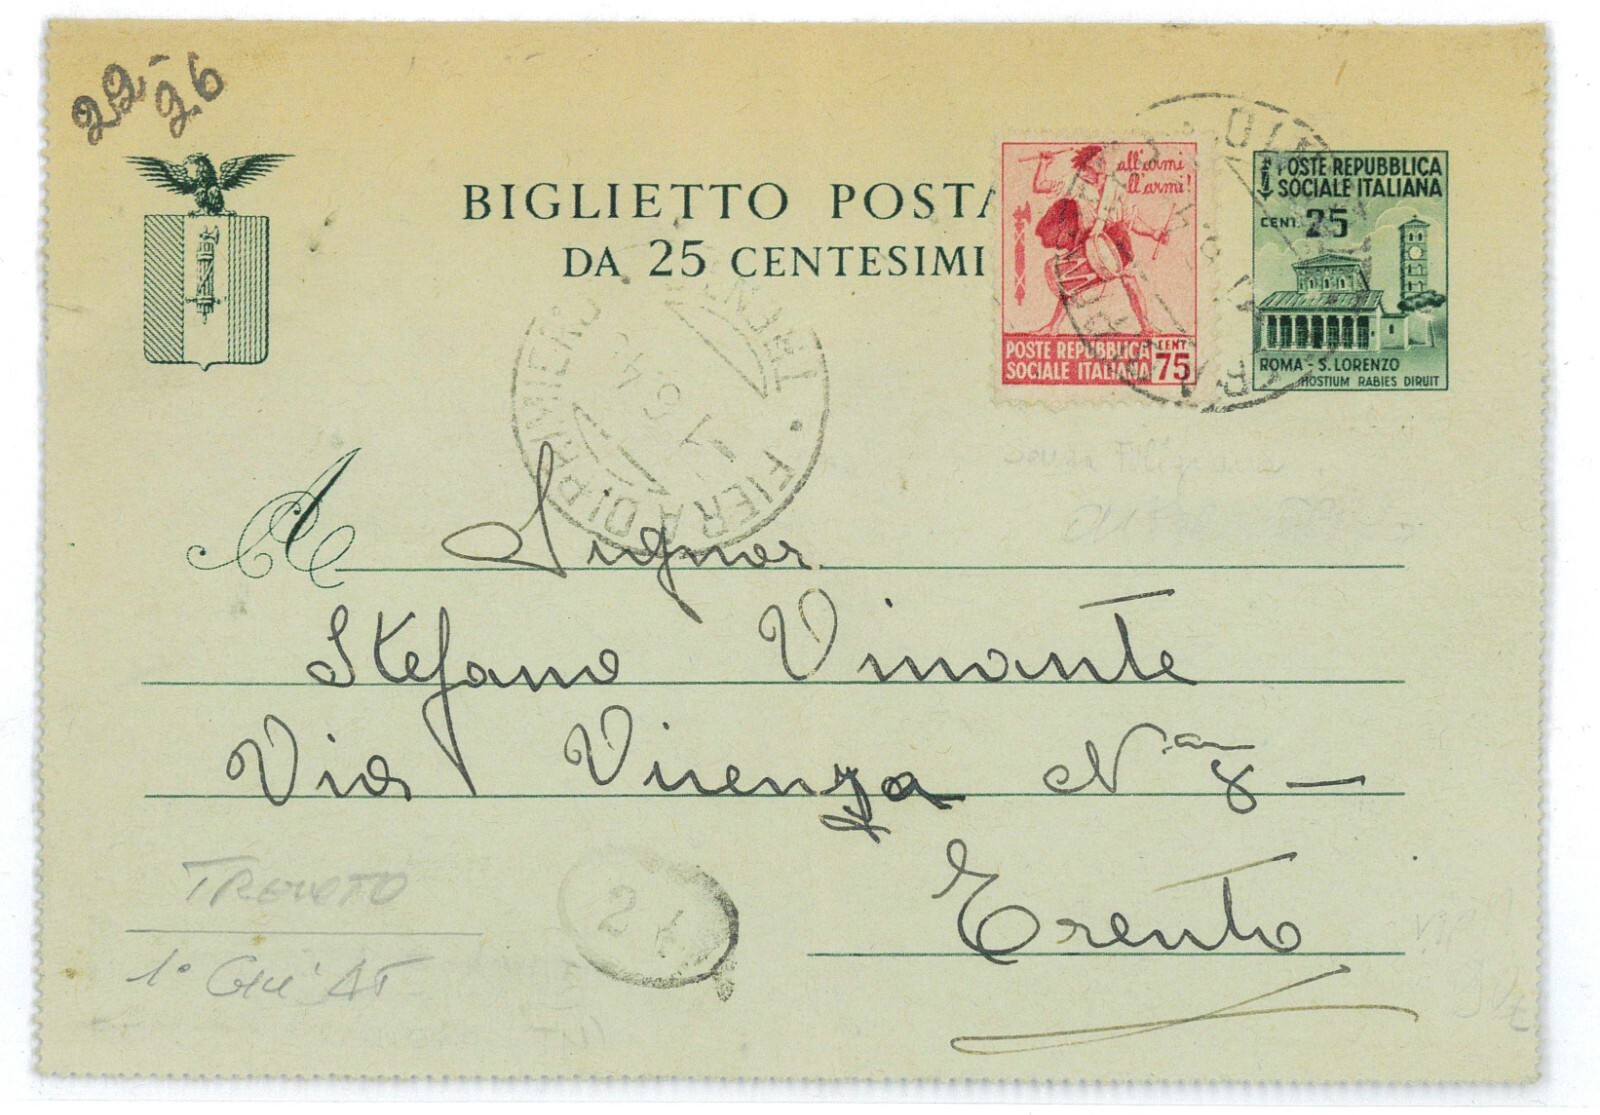 22-
26
BIGLIETTO POSTA
DA 25 CENTESIMI
all'armi
all'armi!
POSTE REPUBBLICA
SOCIALE ITALIANA
CENT
75
POSTE REPUBBLICA
SOCIALE ITALIANA
CENT. 25
ROMA - S. LORENZO
HOSTIUM RABIES DIRUIT
FIERA DI PRIMIERO
A Signor
Stefano Vinante
Via Vicenza N
8 —
Trento
24